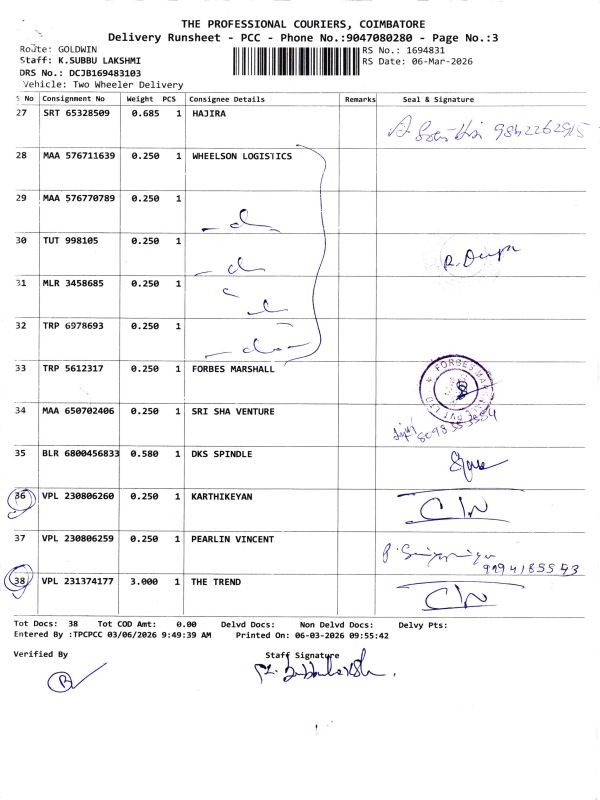 THE PROFESSIONAL COURIERS, COIMBATORE
Delivery Runsheet - PCC - Phone No.:9047080280 - Page No.:3
Route: GOLDWIN
RS No.: 1694831
Staff: K.SUBBU LAKSHMI
RS Date: 06-Mar-2026
DRS No.: DCJB169483103
Vehicle: Two Wheeler Delivery
S No Consignment No Weight PCS Consignee Details Remarks Seal & Signature
27 SRT 65328509 0.685 1 HAJIRA
28 MAA 576711639 0.250 1 WHEELSON LOGISTICS
29 MAA 576770789 0.250 1
30 TUT 998105 0.250 1
31 MLR 3458685 0.250 1
32 TRP 6978693 0.250 1
33 TRP 5612317 0.250 1 FORBES MARSHALL
34 MAA 650702406 0.250 1 SRI SHA VENTURE
35 BLR 6800456833 0.580 1 DKS SPINDLE
36 VPL 230806260 0.250 1 KARTHIKEYAN C/N
37 VPL 230806259 0.250 1 PEARLIN VINCENT
9994185543
38 VPL 231374177 3.000 1 THE TREND C/N
Tot Docs: 38 Tot COD Amt: 0.00 Delvd Docs: Non Delvd Docs: Delvy Pts:
Entered By :TPCPCC 03/06/2026 9:49:39 AM Printed On: 06-03-2026 09:55:42
Verified By Staff Signature